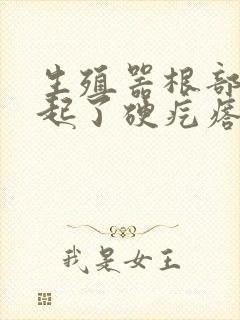 生殖器根部
起了硬疙瘩
我是女王